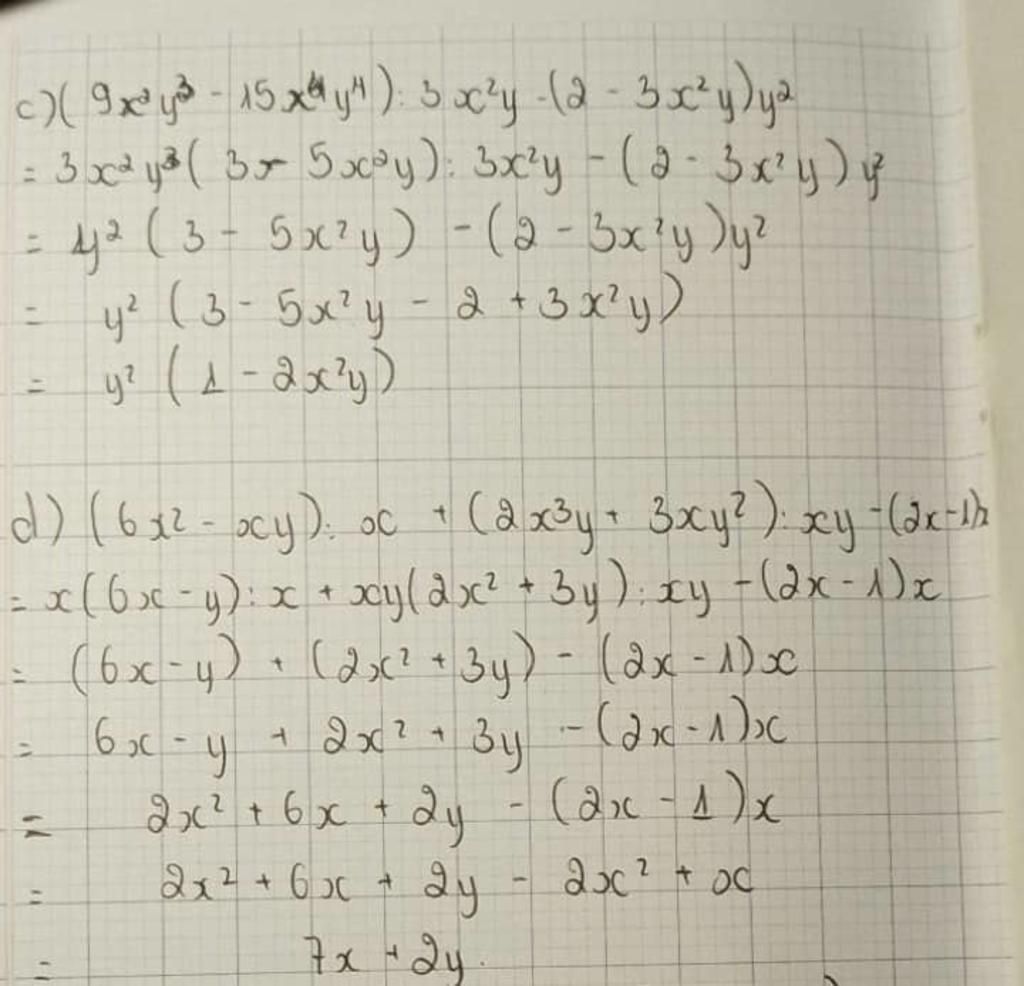 c) (9x²y³ - 15x⁴y⁴) : 3x²y - (2 - 3x²y)y²
= 3x²y³( 3 - 5x²y) : 3x²y - (2 - 3x²y) y²
= y² ( 3 - 5x²y ) - (2 - 3x²y)y²
= y² ( 3 - 5x²y - 2 + 3x²y)
= y² ( 1 - 2x²y)
d) (6x² - xy) : x + (2x³y + 3xy²) : xy - (2x-1)x
= x(6x - y) : x + xy(2x² + 3y) : xy - (2x - 1)x
= (6x - y) + (2x² + 3y) - (2x - 1)x
= 6x - y + 2x² + 3y - (2x - 1)x
= 2x² + 6x + 2y - (2x - 1)x
= 2x² + 6x + 2y - 2x² + x
= 7x + 2y.